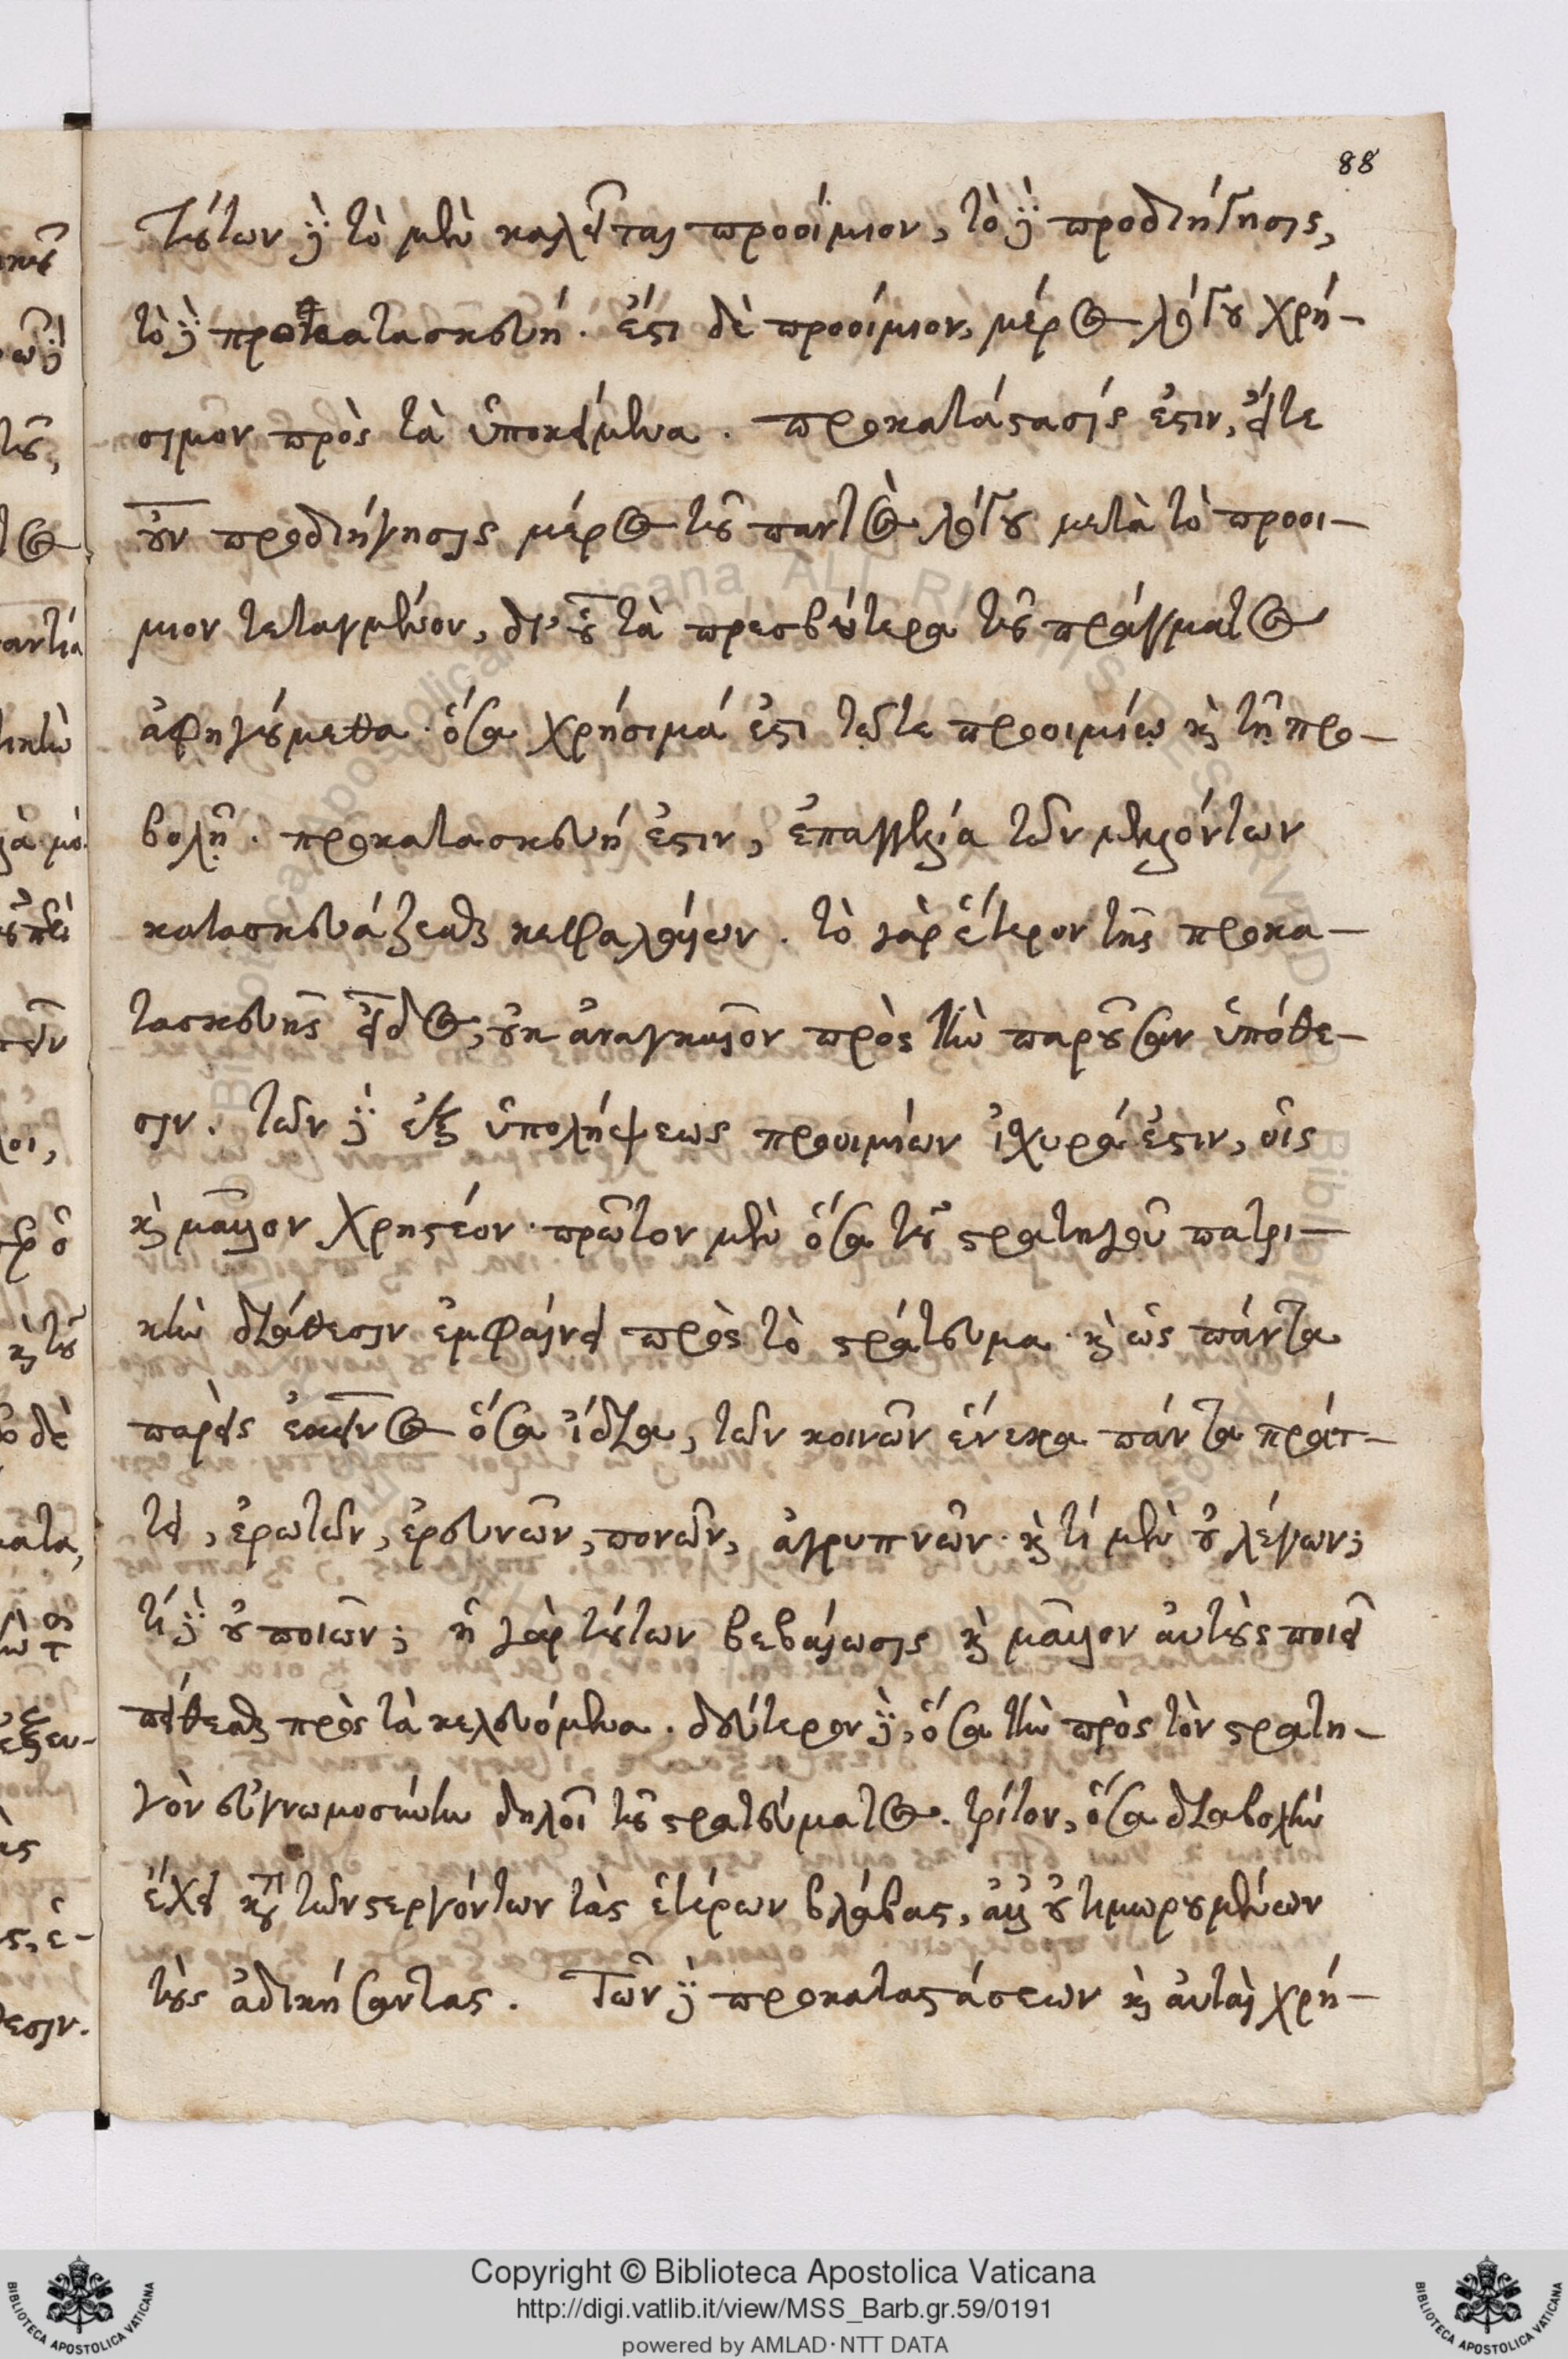 88
τούτων δὲ τὸ μὲν καλεῖται προοίμιον, τὸ δὲ προδιήγησις,
τὸ δὲ προκατασκευή. ἔστι δὲ προοίμιον, μέρος λόγου χρή-
σιμον πρὸς τὰ ὑποκείμενα. προκατάστασίς ἐστιν, εἴτε
οὖν προδιήγησις μέρος τοῦ παντὸς λόγου μετὰ τὸ προοι-
μιον τεταγμένον, δι' οὗ τὰ πρεσβύτερα τοῦ πράγματος
ἀφηγούμεθα. ὅσα χρήσιμά ἐστι τῷτε προοιμίῳ καὶ τῇ προ-
βολῇ. προκατασκευή ἐστιν, ἐπαγγελία τῶν μελλόντων
κατασκευάζεσθαι κεφαλαίων. τὸ γὰρ ἕτερον τῆς προκα-
τασκευῆς εἶδος, οὐκ ἀναγκαῖον πρὸς τὴν παροῦσαν ὑπόθε-
σιν. τῶν δὲ ἐξ ὑπολήψεως προοιμίων ἰσχυρά ἐστιν, οἷς
καὶ μᾶλλον χρηστέον. πρῶτον μὲν ὅσα τοῦ στρατηγοῦ πατρι-
κὴν διάθεσιν ἐμφαίνει πρὸς τὸ στράτευμα. καὶ ὡς πάντα
παρεὶς ἐκεῖνος ὅσα ἴδια, τῶν κοινῶν ἕνεκα πάντα πράτ-
τει, ἐρωτῶν, ἐρευνῶν, πονῶν, ἀγρυπνῶν. καὶ τί μὲν οὐ λέγων;
τί δὲ οὐ ποιῶν; ἡ γὰρ τούτων βεβαίωσις καὶ μᾶλλον αὐτοὺς ποιεῖ
πείθεσθαι πρὸς τὰ κελευόμενα. δεύτερον δὲ, ὅσα τὴν πρὸς τὸν στρατη-
γὸν εὐγνωμοσύνην δηλοῖ τοῦ στρατεύματος. τρίτον, ὅσα διαβολὴν
ἔχει κατὰ τῶν στεργόντων τὰς ἑτέρων βλάβας, ἀλλ' οὐ τιμωρουμένων
τοὺς ἀδικήσαντας. Τῶν δὲ προκαταστάσεων καὶ αὐταὶ χρή-
Copyright © Biblioteca Apostolica Vaticana
http://digi.vatlib.it/view/MSS_Barb.gr.59/0191
powered by AMLAD·NTT DATA